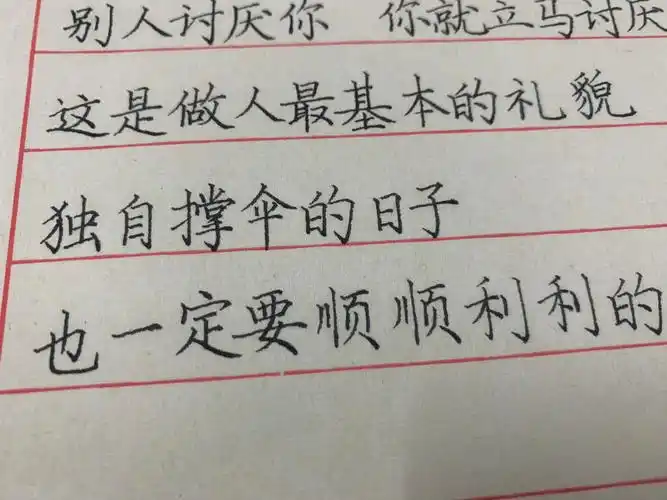 别人讨厌你 你就立马讨厌
这是做人最基本的礼貌
独自撑伞的日子
也一定要顺顺利利的